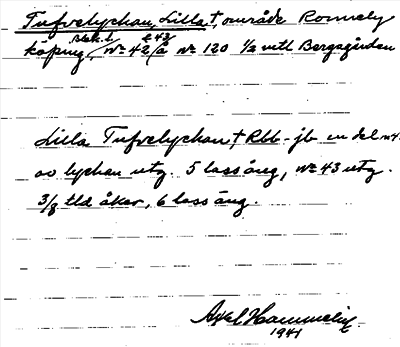 Tufvelyckan, Lilla †, område Ronneby
köping, Blek. l. № 42 & 43 /å № 120 1/2 vittl Bergsgården
Lilla Tufvelyckan † Rbb - jb en del n:42
av lyckan utg. 5 lass äng, № 43 utg.
3/8 tld åker, 6 lass äng.
Axel Hammelin
1941